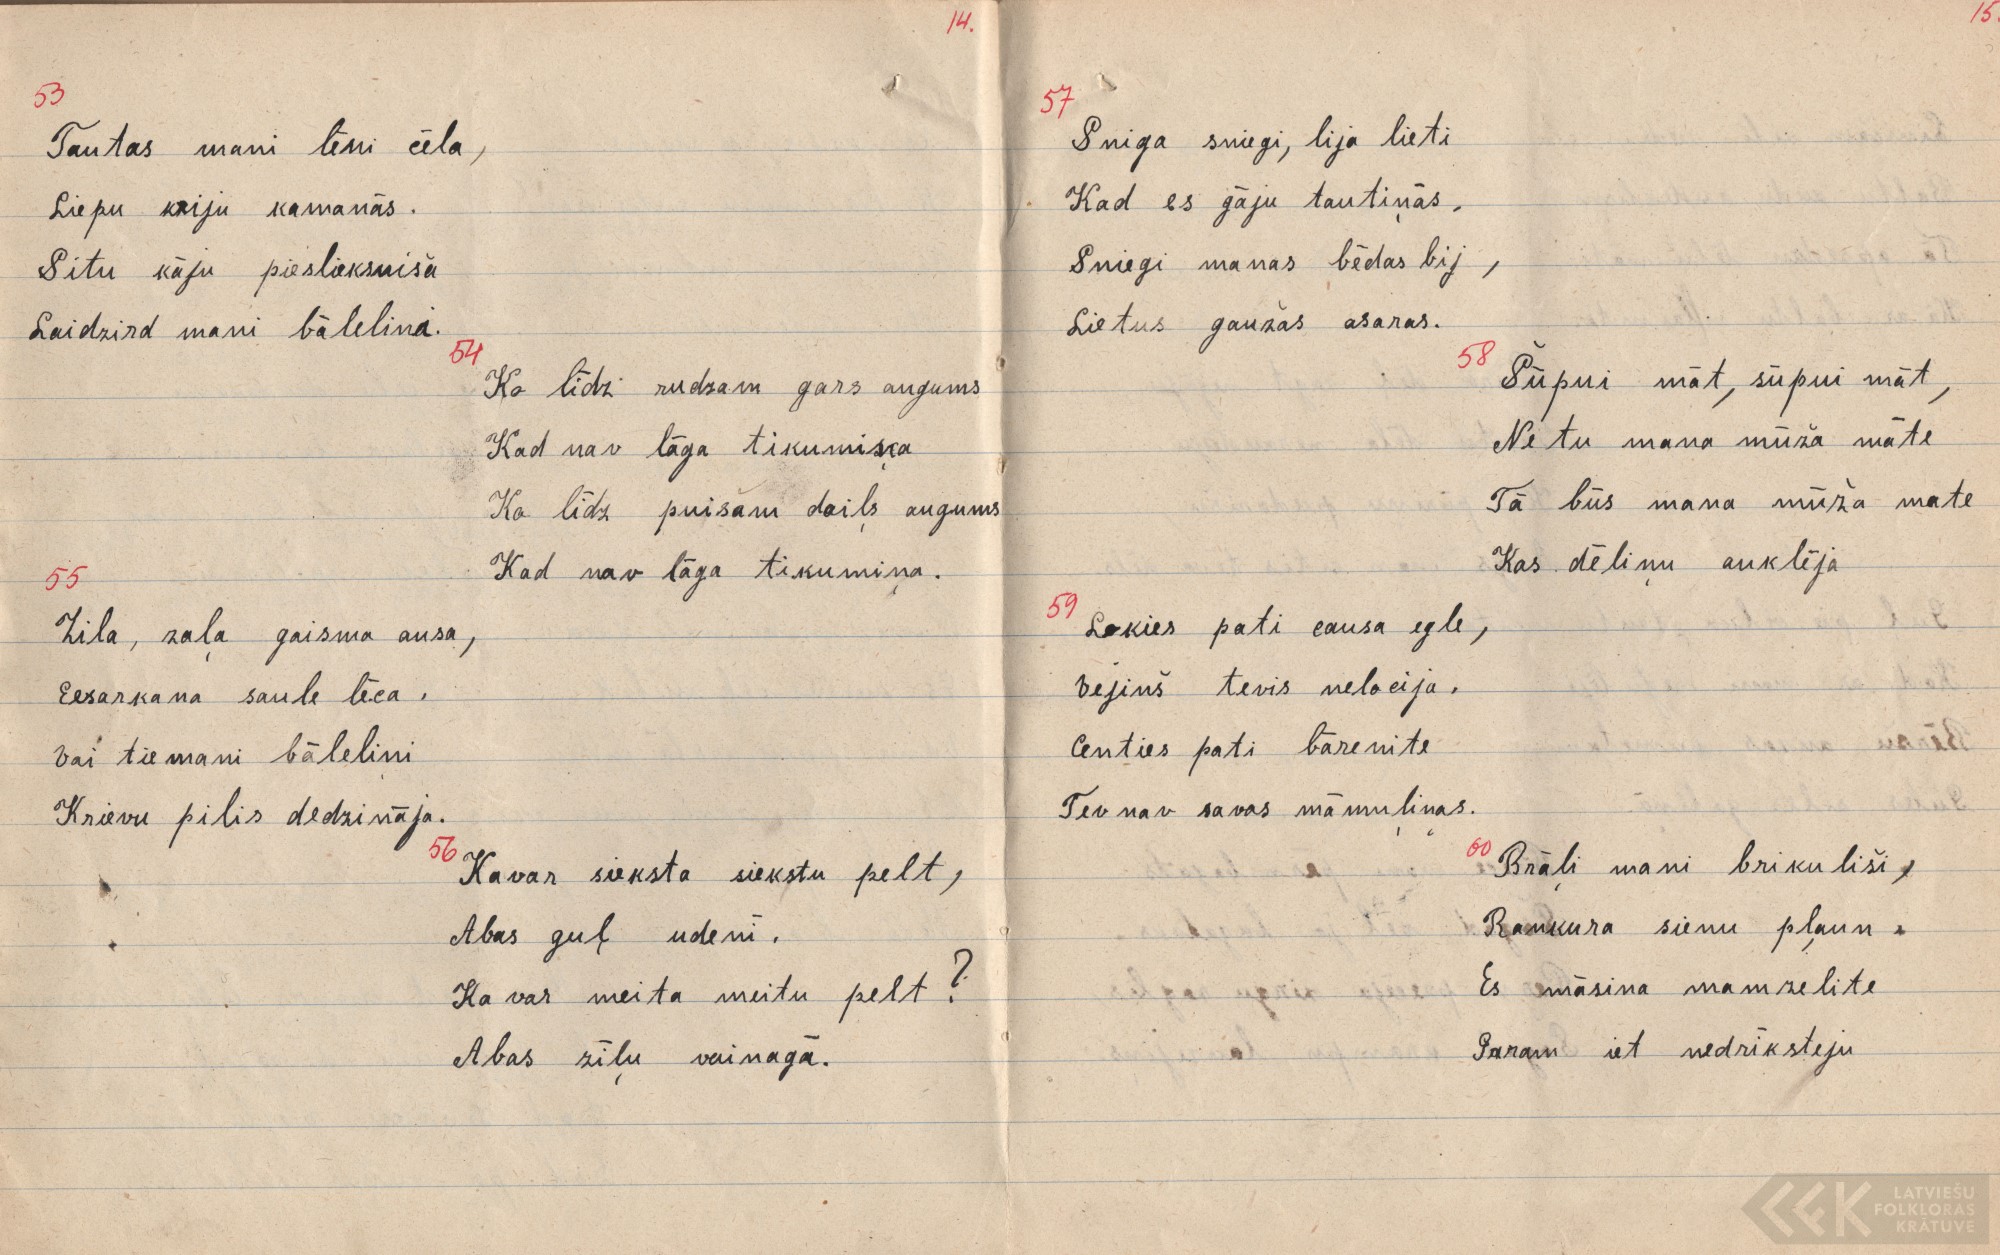 14.
53
Tautas mani lēni cēla,
Liepu kriju kamanās.
Situ kāju piesliekšniša
Laidzird mani bālelinı.
54
Ko līdzi rudzam gars augums
Kad nav lāga tikumiņa
Ko līdz puišam daiļs augums
Kad nav lāga tikumiņa.
55
Zila, zaļa gaisma ausa,
Eesarkana saule lēca.
Vai tie mani bāleliņi
Krievu pilis dedzināja.
56
Kavar sieksta siekstu pelt,
Abas guļ udenī.
Ka var meita meitu pelt?
Abas zīļu vainagā.
15.
57
Sniga sniegi, lija lieti
Kad es gāju tautiņās.
Sniegi manas bēdas bij,
Lietus gaužās asaras.
58
Šūpui māt, sūpui māt,
Ne tu mana mūža māte
Tā būs mana mūža mate
Kas dēliņu auklēja
59
Lokies pati causa egle,
Vējinš tevis nelocija.
Centies pati bārenite
Tev nav savas māmuļiņas.
60
Brāļi mani brikuliši,
Raukura sienu pļaun.
Es māsina mamzelite
Garam iet nedrīksteju
LATVIEŠU
FOLKLORAS
KRĀTUVE